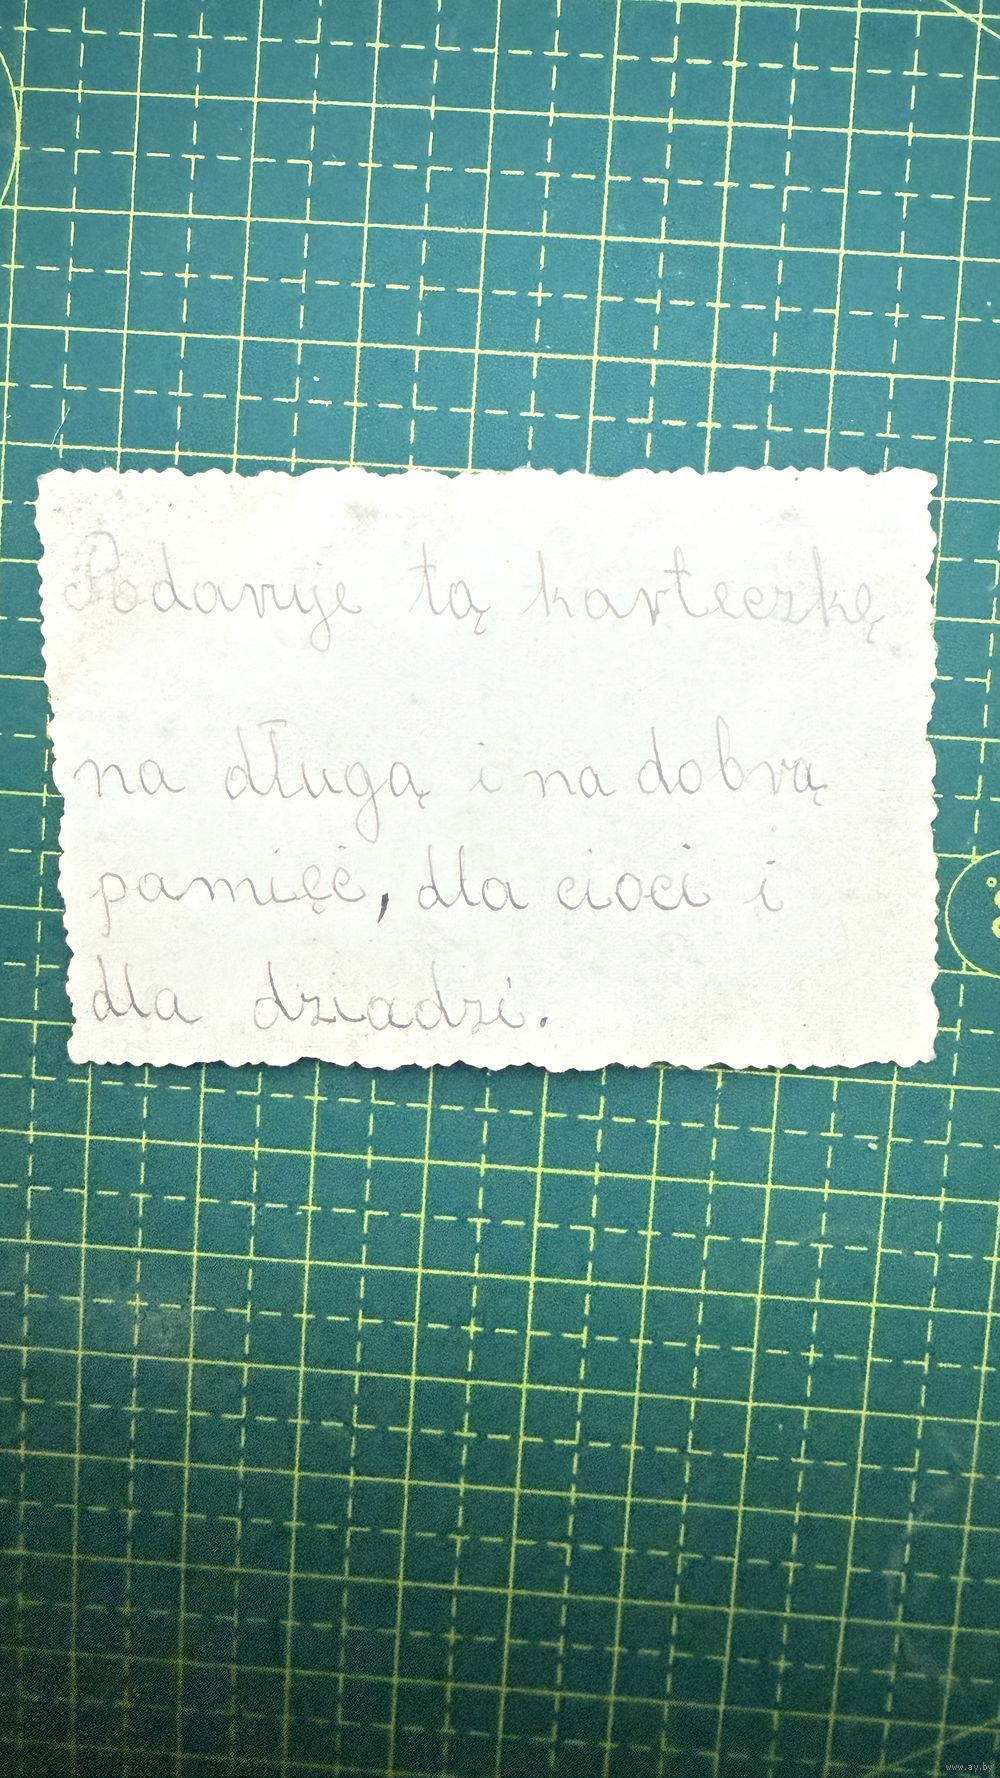 Podaruje tą karteczkę
na długą i na dobrą
pamięć, dla cioci i
dla dziadzi.
www.ay.by